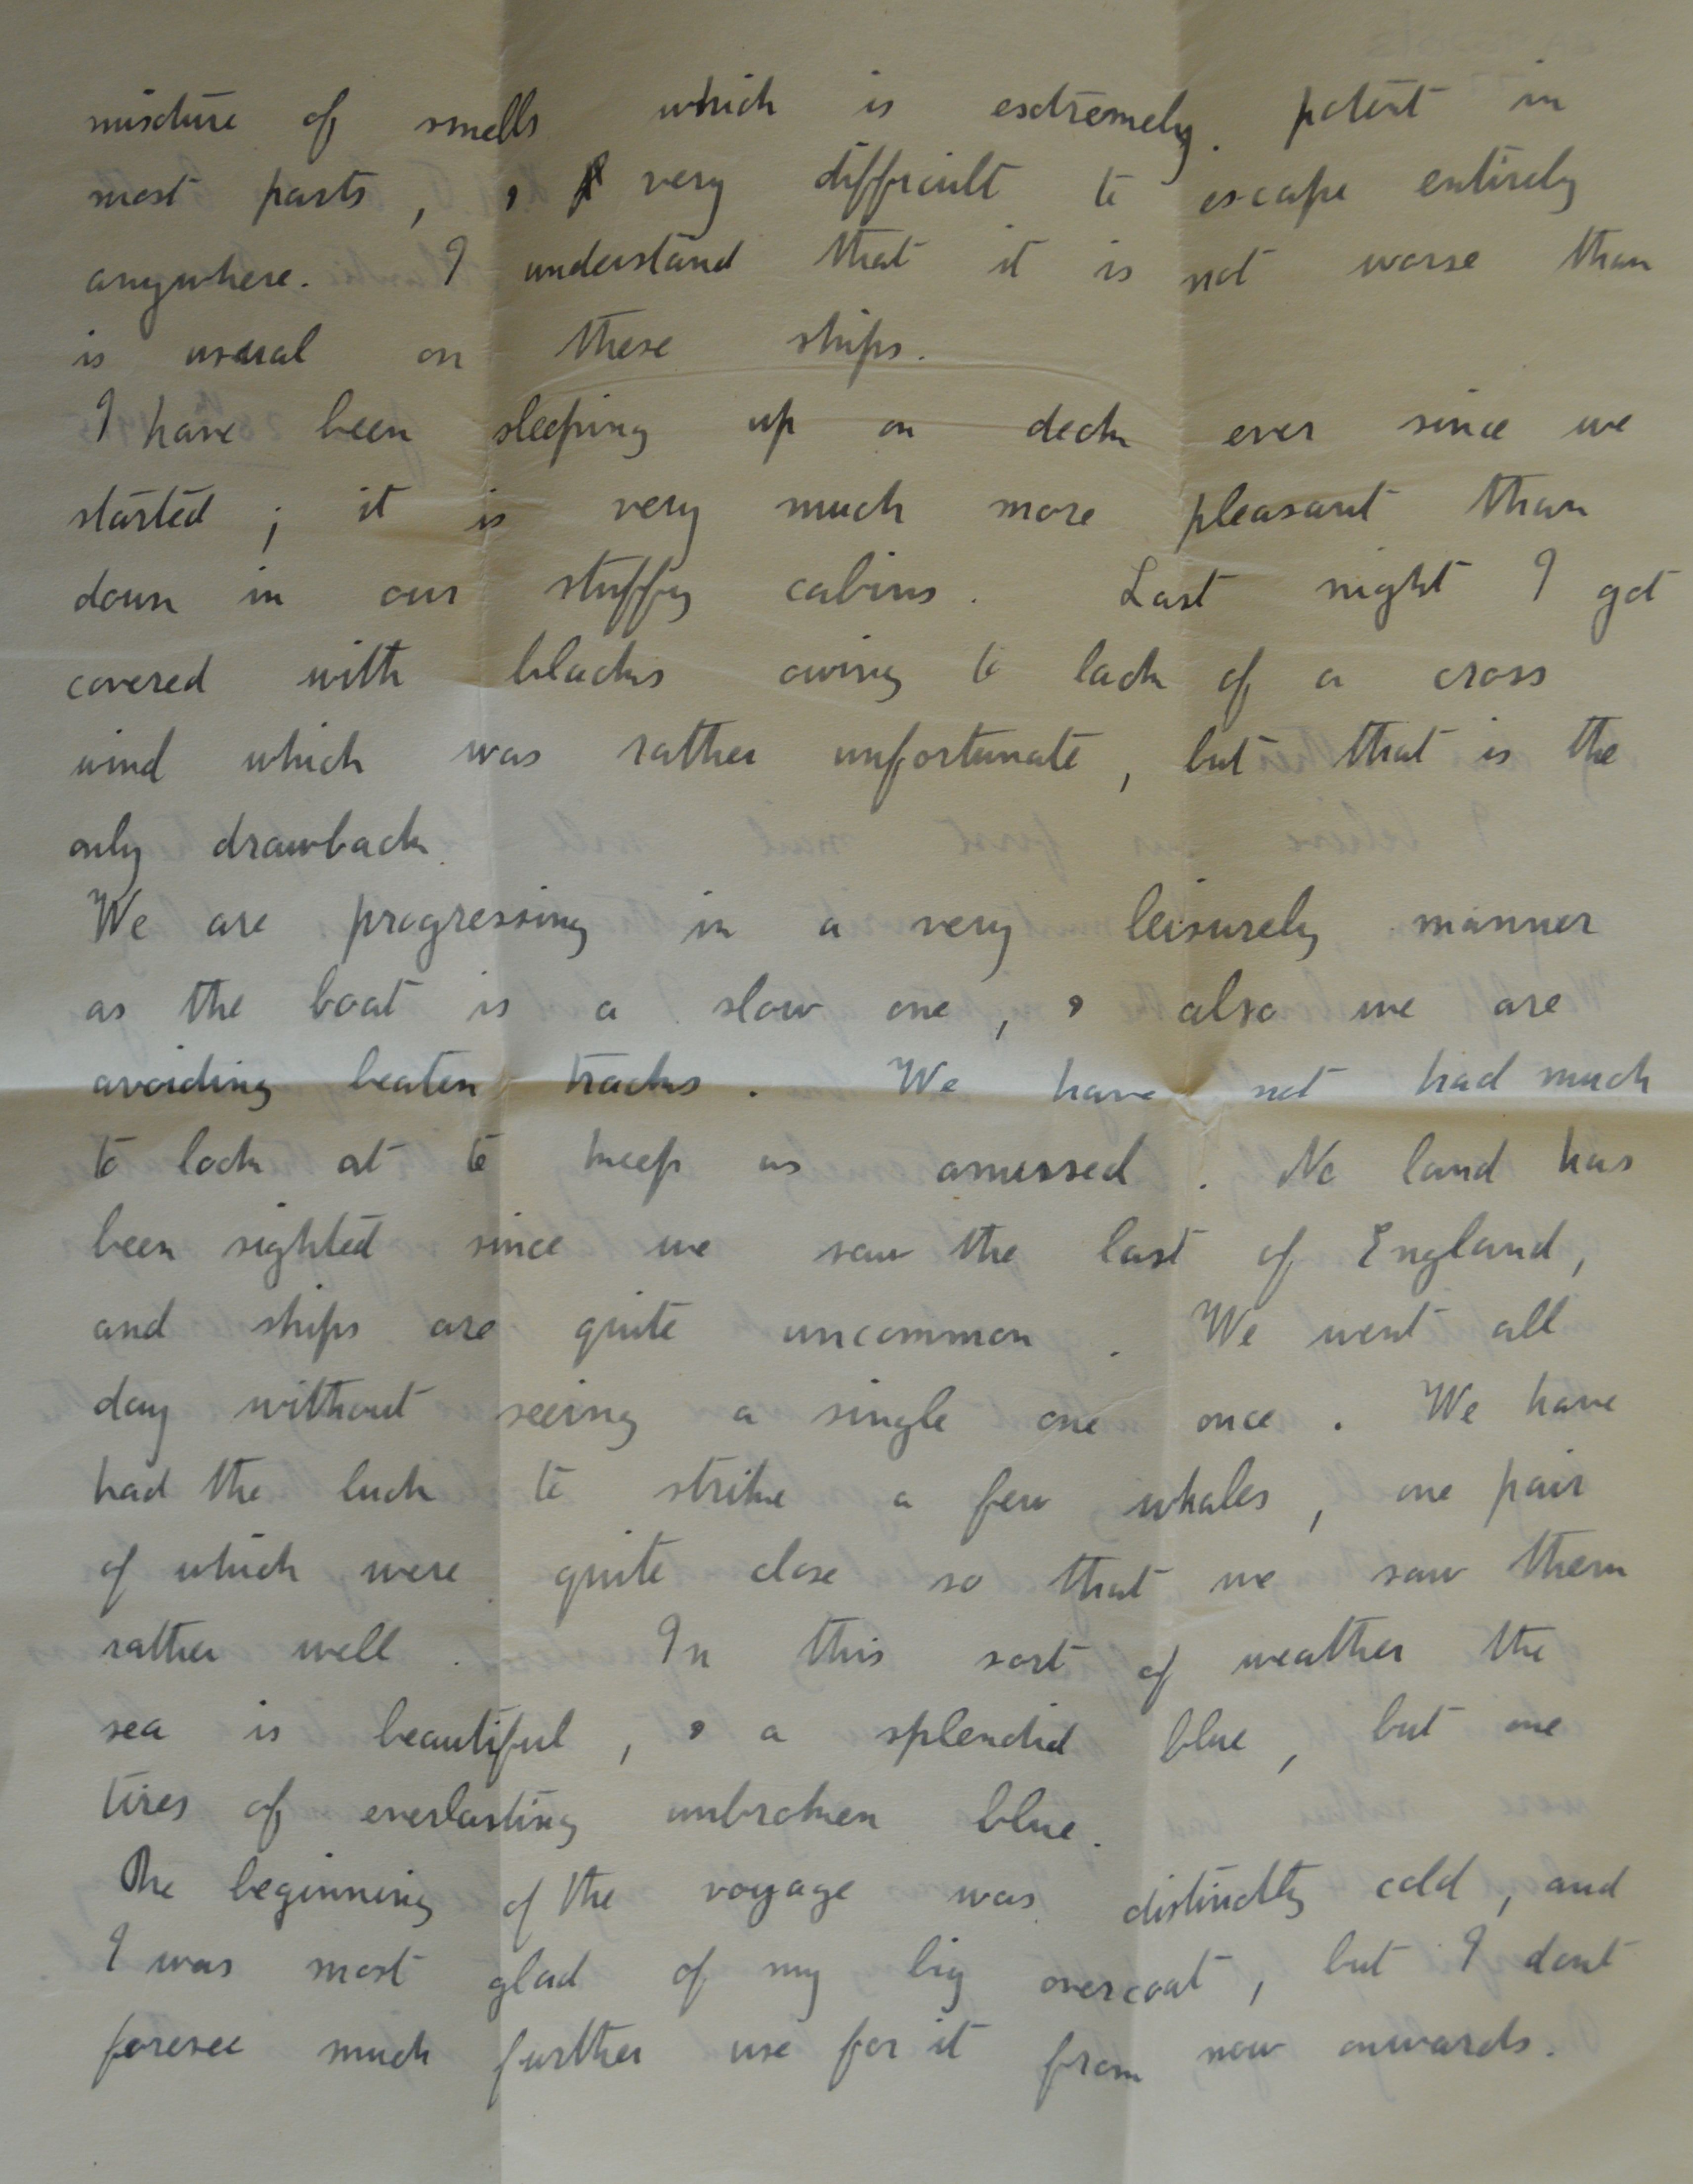 mixture of smells which is extremely potent in
most parts, & very difficult to escape entirely
anywhere. I understand that it is not worse than
is usual on these ships.
I have been sleeping up on deck ever since we
started; it is very much more pleasant than
down in our stuffy cabins. Last night I got
covered with blacks owing to lack of a cross
wind which was rather unfortunate, but that is the
only drawback.
We are progressing in a very leisurely manner
as the boat is a slow one, & also we are
avoiding beaten tracks. We have not had much
to look at to keep us amused. No land has
been sighted since we saw the last of England,
and ships are quite uncommon. We went all
day without seeing a single one once. We have
had the luck to strike a few whales, one pair
of which were quite close so that we saw them
rather well. In this sort of weather the
sea is beautiful, & a splendid blue, but one
tires of everlasting unbroken blue.
The beginning of the voyage was distinctly cold, and
I was most glad of my big overcoat, but I dont
foresee much further use for it from now onwards.